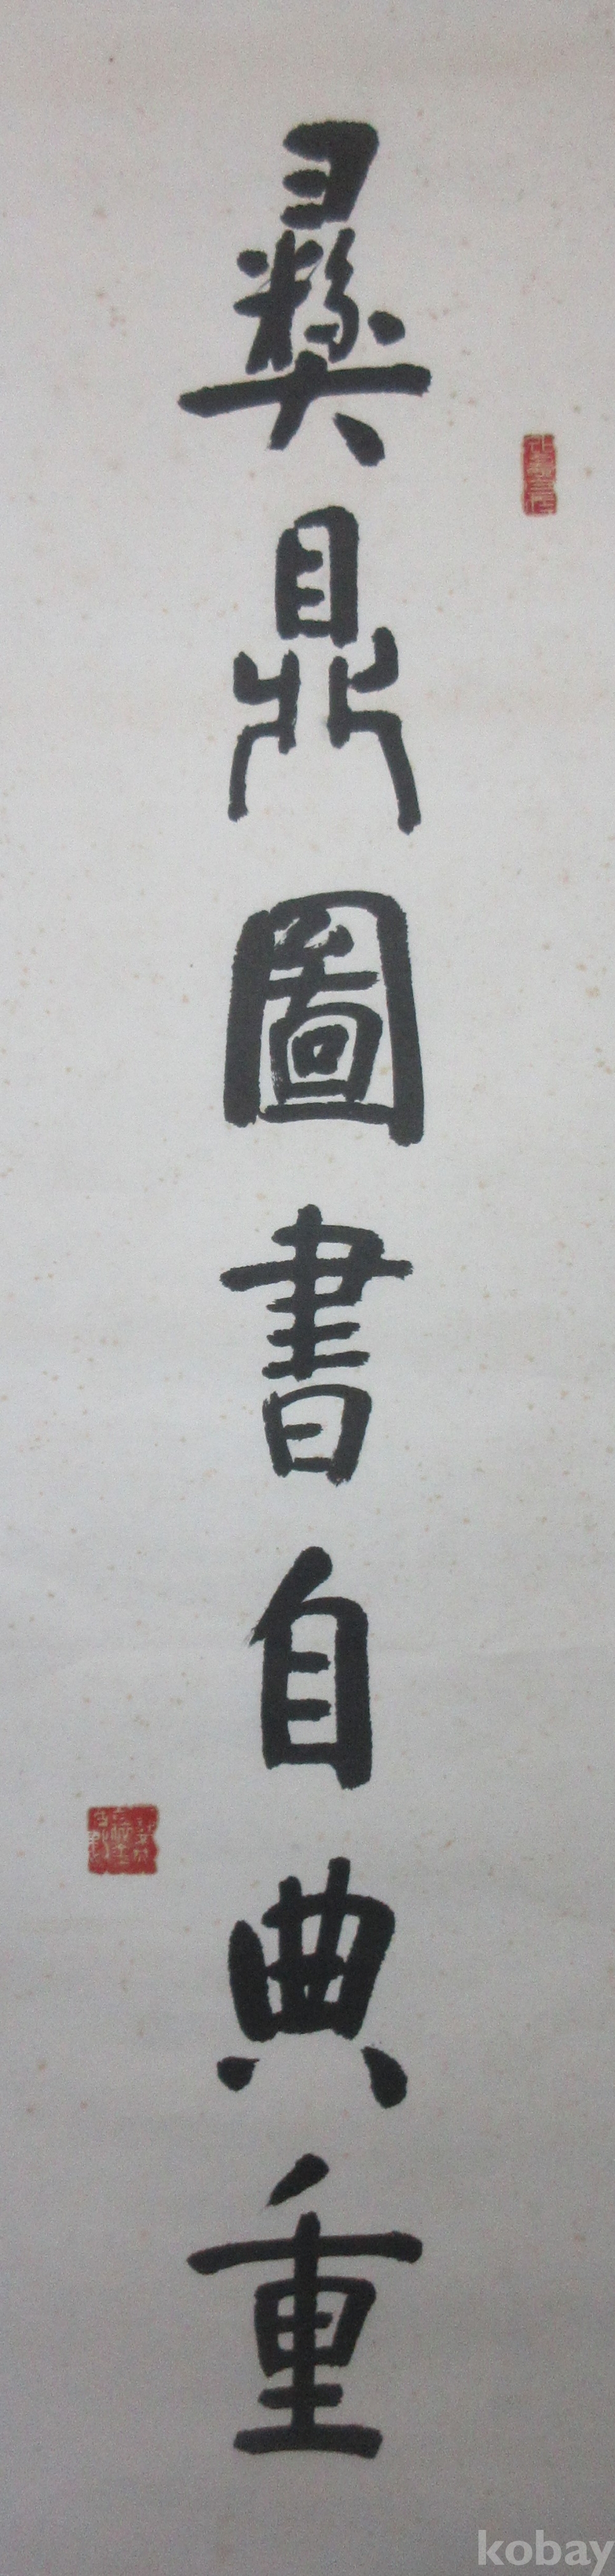 彝鼎圖書自典重
kobay